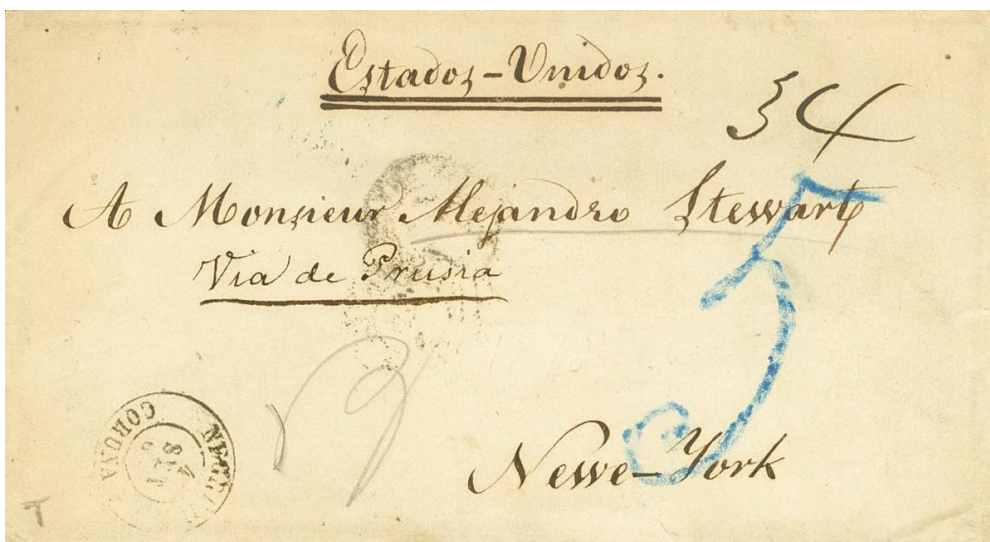 Estados-Unidos.
34
A Monsieur Alejandro Stewart
Via de Prusia
5
Newe-York
CORUÑA
4
T